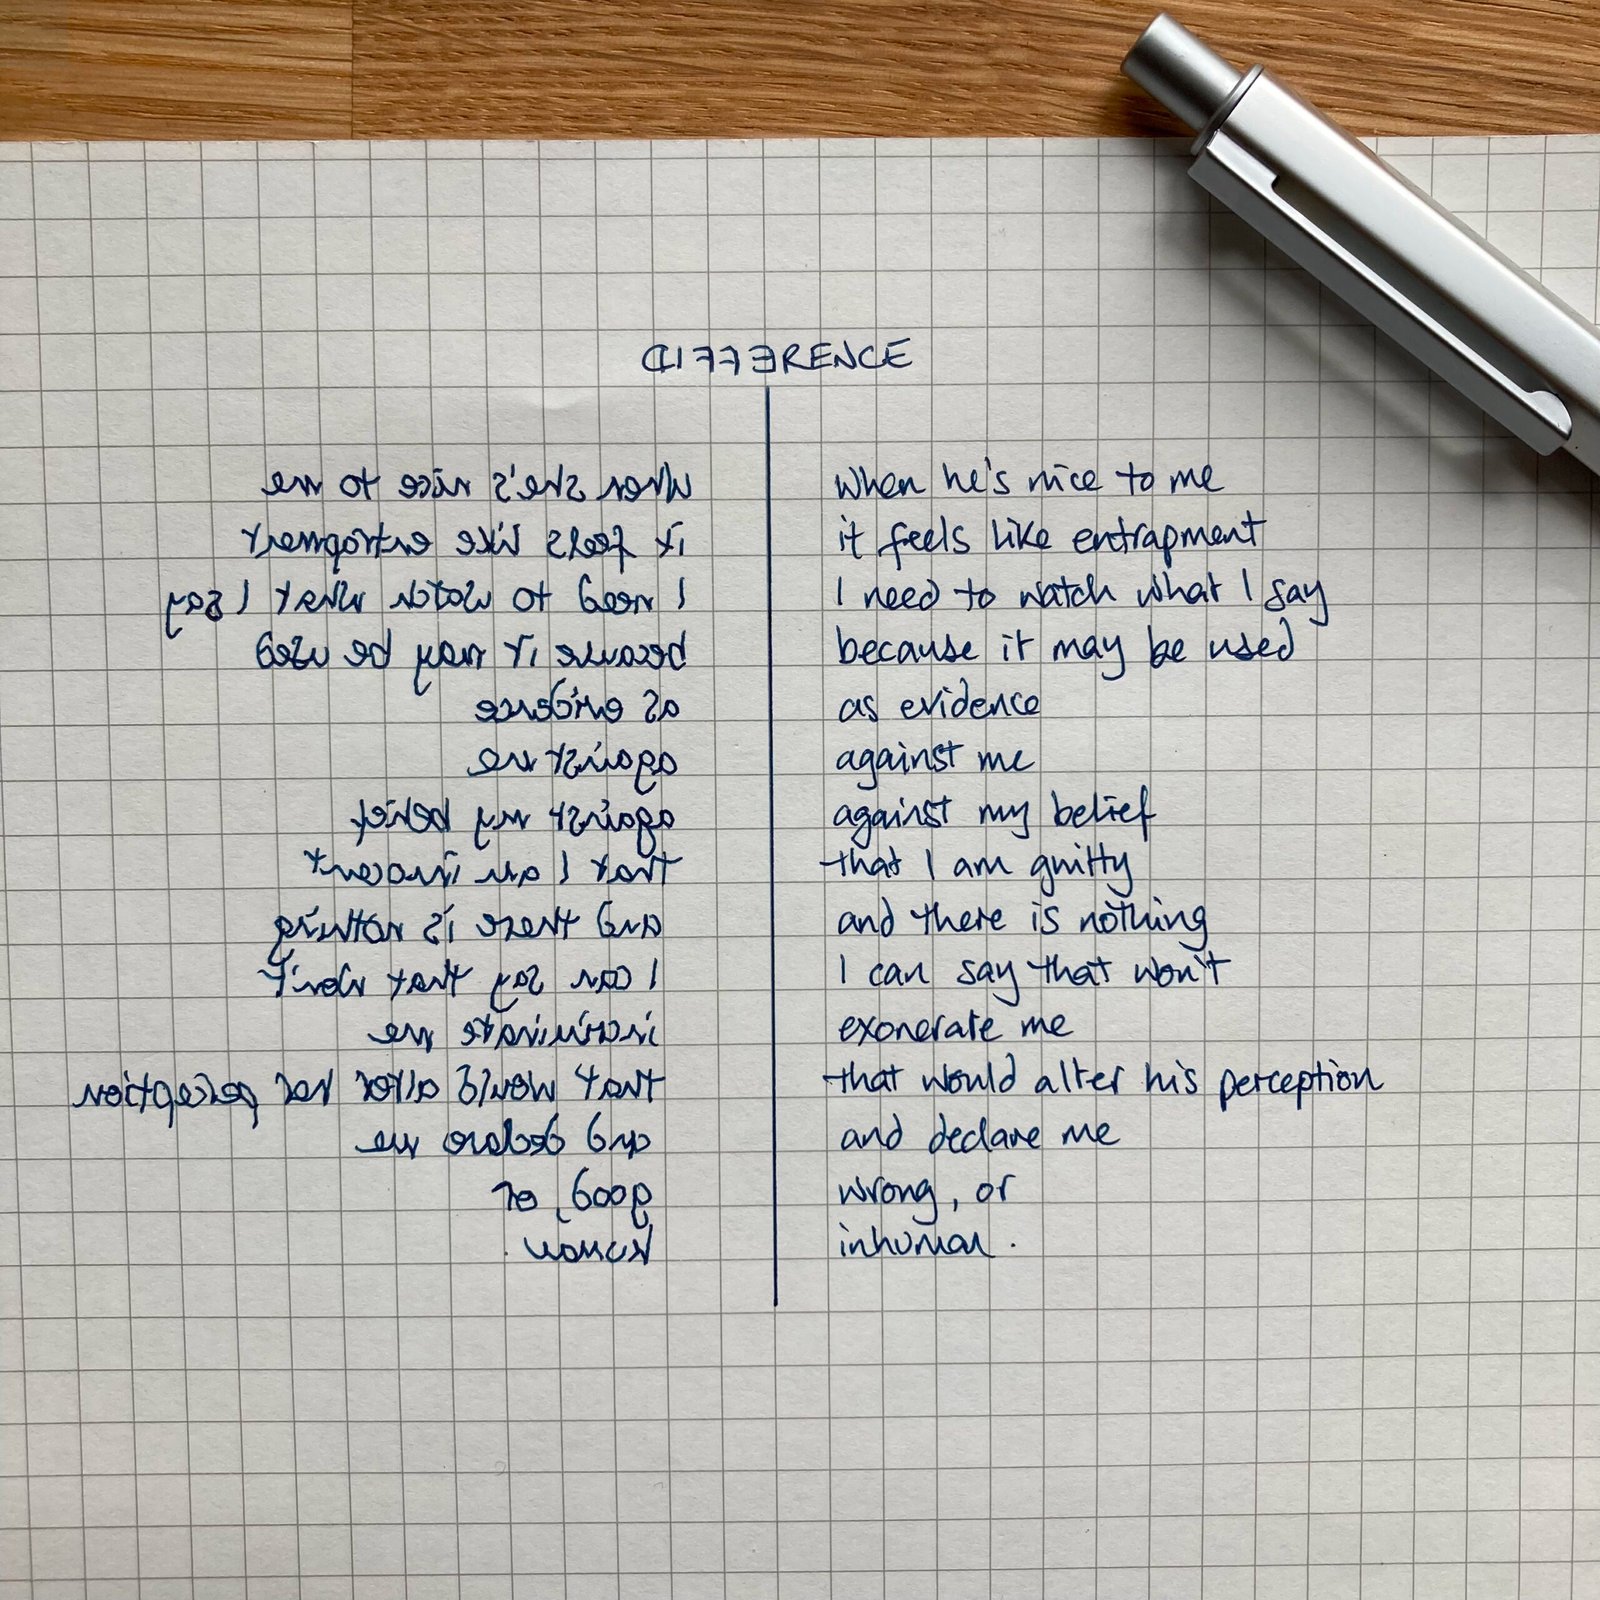 DIFFERENCE
When she's nice to me
it feels like entrapment
I need to watch what I say
because it may be used
as evidence
against me
against my belief
that I am innocent
and there is nothing
I can say that won't
incriminate me
that would alter her perception
and declare me
good, or
human.
when he's nice to me
it feels like entrapment
I need to watch what I say
because it may be used
as evidence
against me
against my belief
that I am guilty
and there is nothing
I can say that won't
exonerate me
that would alter his perception
and declare me
wrong, or
inhuman.